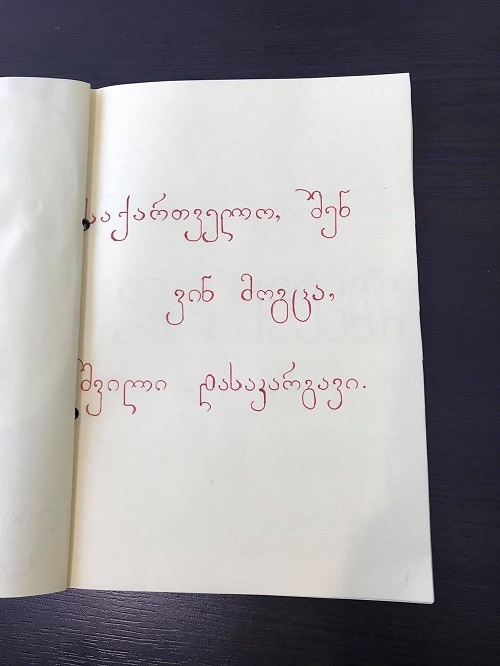 საქართველო, შენ
ვინ მოგცა,
შვილი დასაკარგავი.